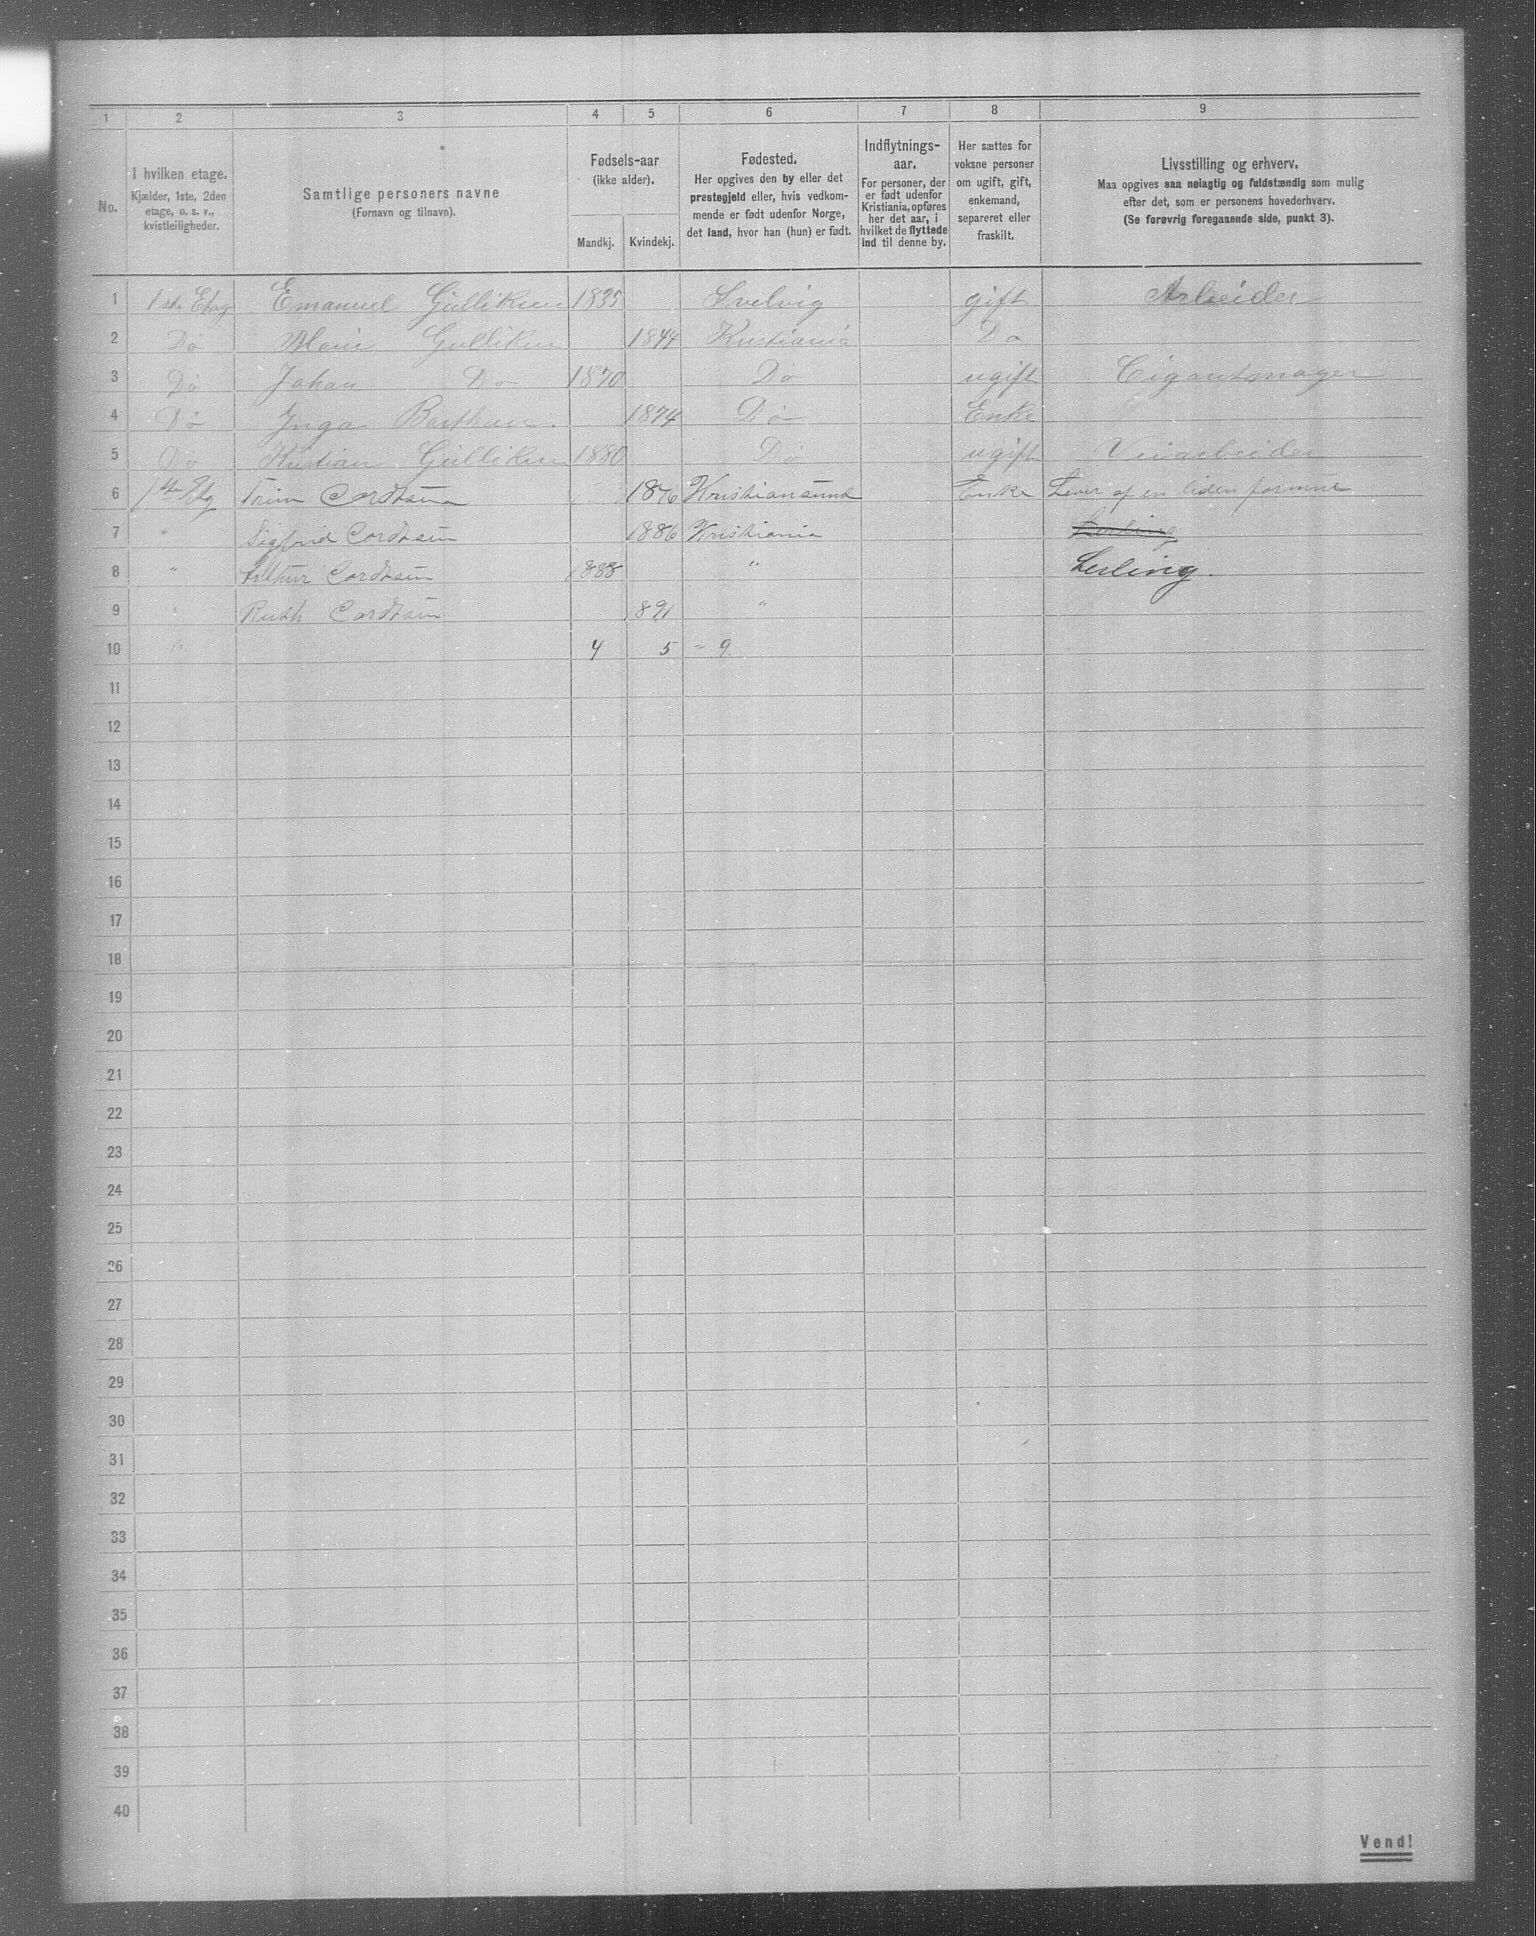 1 2 3 4 5 6 7 8 9
No.
I hvilken etage.
Kjælder, 1ste, 2den
etage, o. s. v.,
kvistleiligheder.
Samtlige personers navne
(Fornavn og tilnavn).
Fødsels-aar
(ikke alder).
Mandkj. Kvindekj.
Fødested.
Her opgives den by eller det
prestegjeld eller, hvis vedkom-
mende er født udenfor Norge,
det land, hvor han (hun) er født.
Indflytnings-
aar.
For personer, der
er født udenfor
Kristiania, opføres
her det aar, i
hvilket de flyttede
ind til denne by.
Her sættes for
voksne personer
om ugift, gift,
enkemand,
separeret eller
fraskilt.
Livsstilling og erhverv.
Maa opgives saa nøiagtig og fuldstændig som mulig
efter det, som er personens hovederhverv.
(Se forøvrig foregaaende side, punkt 3).
1 1ste Etag Emanuel Gulliksen 1835 Svelvig gift Arbeider
2 Do Marie Gulliksen 1844 Kristiania Do
3 Do Johan Do 1870 Do ugift Cigarmager
4 Do Inga 1874 Do Enke
5 Do Kristian Gulliksen 1880 Do ugift Vinarbeider
6 1ste Etg Cordtsen Kristiansund Enke Lever af en liden formue
7 " Sigfrid Cordtsen 1886 Kristiania
8 " Arthur Cordtsen 1888 " Lerling.
9 " Ruth Cordtsen 1891 "
10 " 4 5 = 9.
11
12
13
14
15
16
17
18
19
20
21
22
23
24
25
26
27
28
29
30
31
32
33
34
35
36
37
38
39
40
Vend!